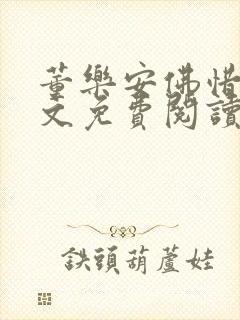 董樂安佛惜
文免費閱讀
鐵頭葫蘆娃